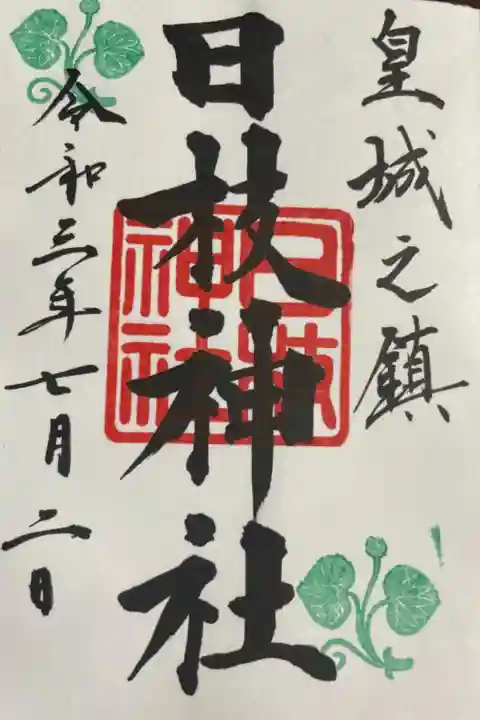 皇城之鎮
日枝神社
日枝神社
令和三年七月二日